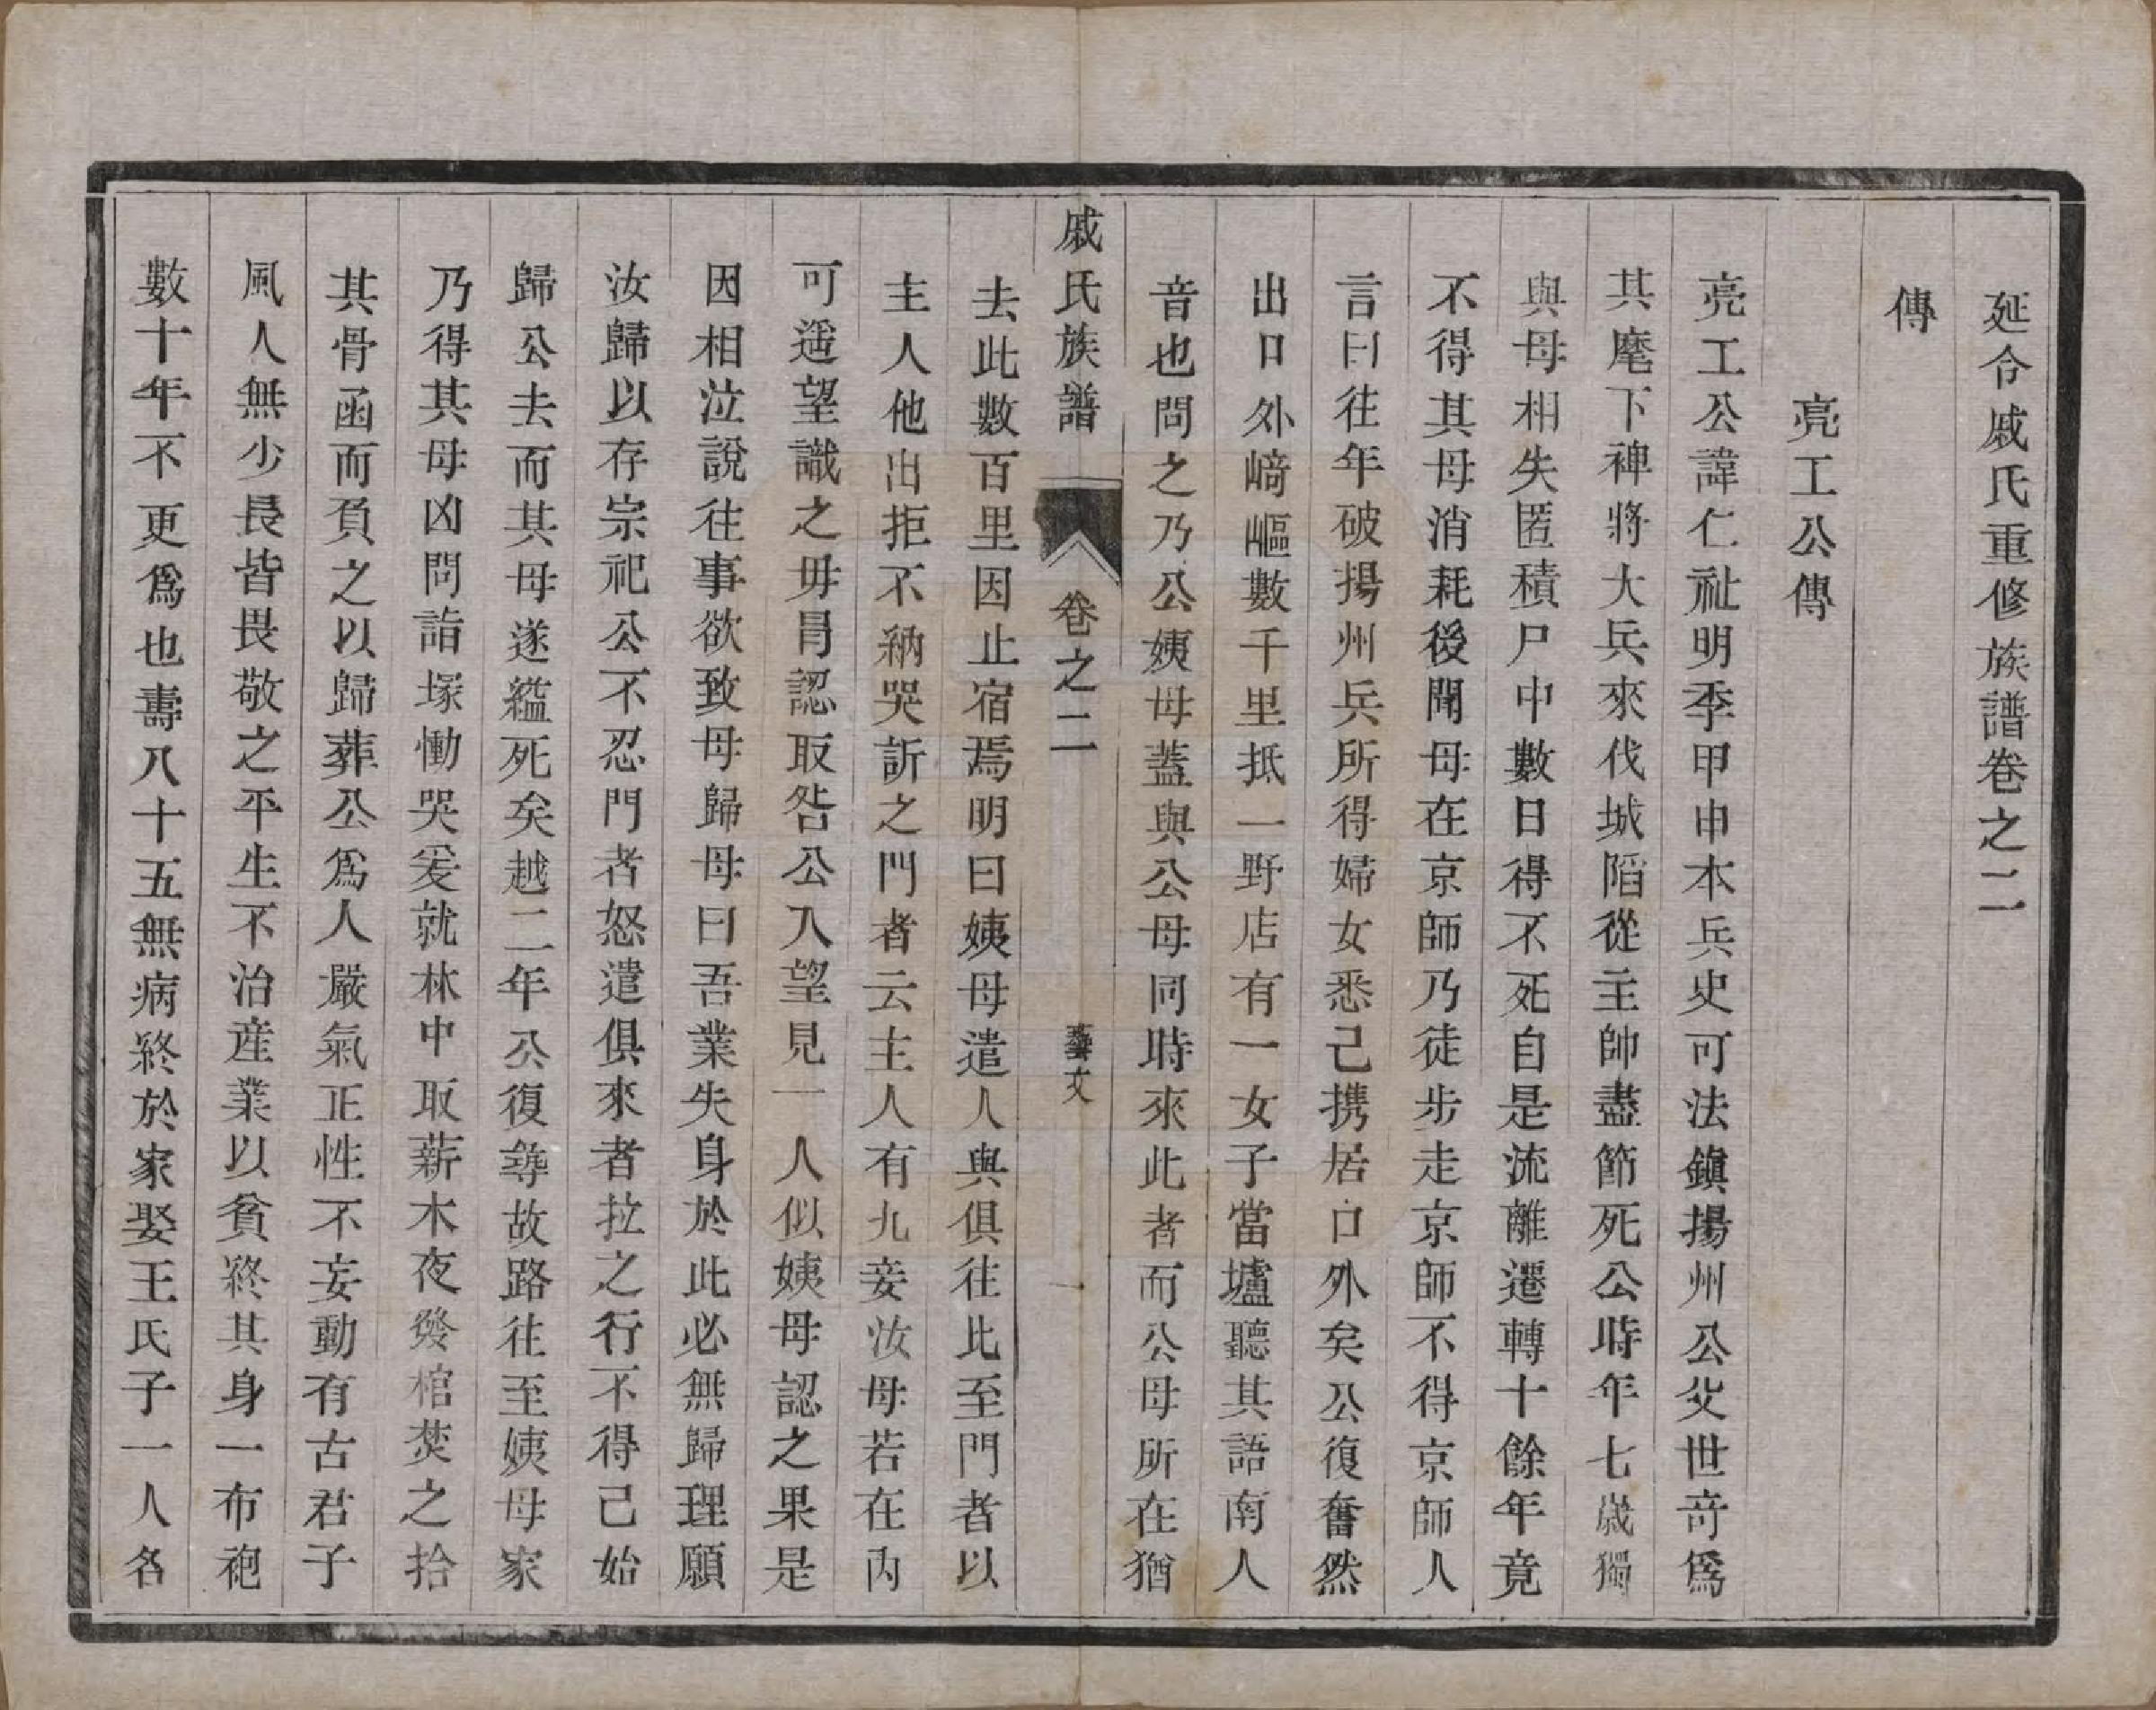 延令戚氏重修族譜卷之二
傳
亮工公傳
亮工公諱仁祉明季甲申本兵史可法鎮揚州公父世奇爲
其麾下裨將大兵來伐城陷從主帥盡節死公時年七歲獨
與母相失匿積尸中數日得不死自是流離遷轉十餘年竟
不得其母消耗後聞母在京師乃徒步走京師不得京師人
言曰往年破揚州兵所得婦女悉己携居口外矣公復奮然
出口外崎嶇數千里抵一野店有一女子當壚聽其語南人
音也問之乃公姨母蓋與公母同時來此者而公母所在猶
戚氏族譜 卷之二 藝文 一
去此數百里因止宿焉明日姨母遣人與俱往比至門者以
主人他出拒不納哭訴之門者云主人有九妾汝母若在內
可遥望識之毋冐認取咎公入望見一人似姨母認之果是
因相泣說往事欲致母歸母曰吾業失身於此必無歸理願
汝歸以存宗祀公不忍門者怒遣俱來者拉之行不得己始
歸公去而其母遂縊死矣越二年公復尋故路往至姨母家
乃得其母凶問詣塚慟哭爰就林中取薪木夜發棺焚之拾
其骨函而負之以歸葬公爲人嚴氣正性不妄動有古君子
風人無少長皆畏敬之平生不治産業以貧終其身一布袍
數十年不更爲也壽八十五無病終於家娶王氏子一人各